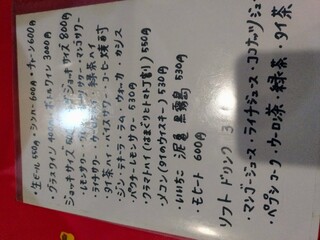 ・生ビール550円・シンハー600円・チャーン600円
・グラスワイン400円 ボトルワイン3000円
ジョッキサイズ 800円
・レモンサワー・マンゴサワー
・ライチサワー・緑茶ハイ
・タイ茶ハイ・バイスサワー・コーヒー焼酎
・ジン・テキーラ・ラム・ウォッカ・カシス
・パウチレモンサワー530円
・クラマトハイ(はまぐりとトマト丁割)550円
・メコン(タイのウイスキー)530円
・いいちこ 泥亀 黒霧島 530円
・モヒート 600円
ソフトドリンク 3
・マンゴジュース・ライチジュース・ココナッツジュ
・ペプシコーク・ウーロン茶・緑茶・タイ茶